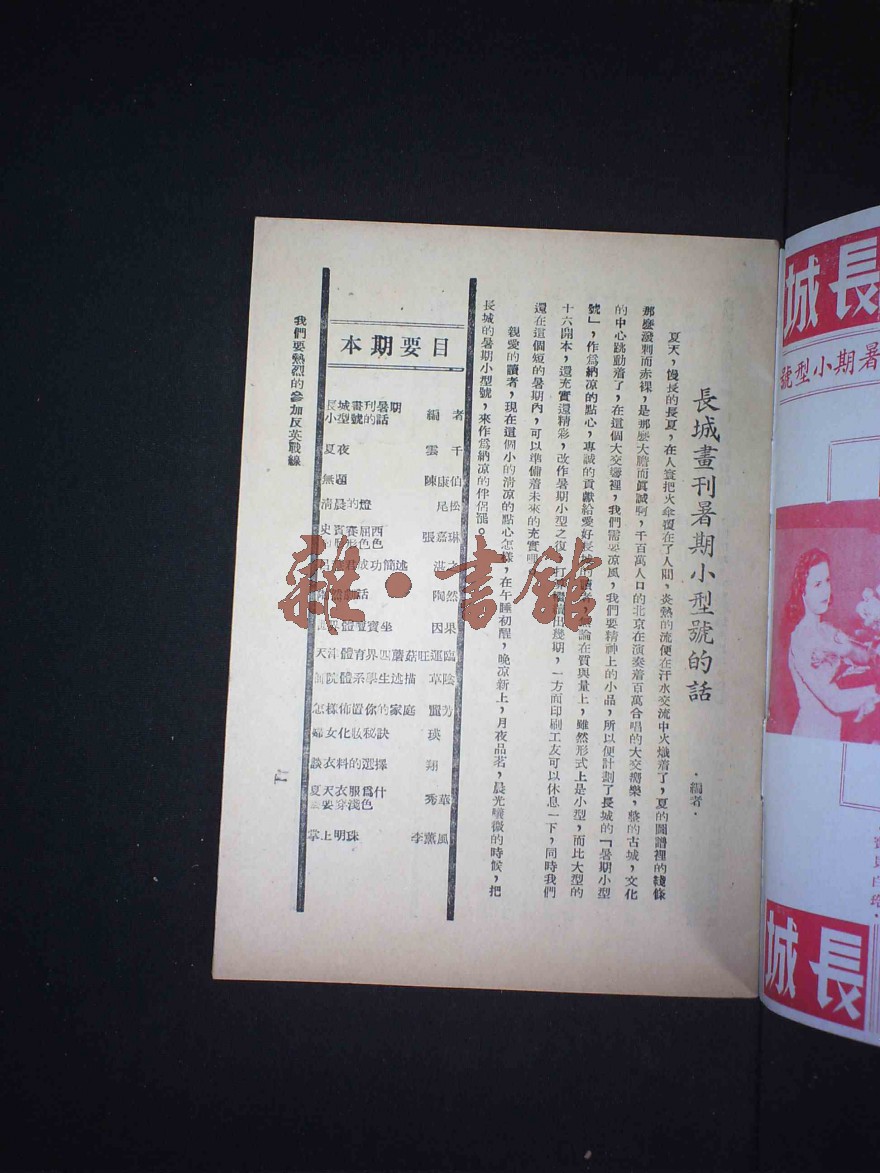 長城畫刊暑期小型號的話
·編者·
夏天，慢長的長夏，在人寰把火傘覆在了人間，炎熱的流便在汗水交流中火熾着了，夏的圖譜裡的綫條
那麼潑剌而赤裸，是那麼大膽而眞誠啊，千百萬人口的北京在演奏着百萬合唱的大交嚮樂，整的古城，文化
的中心跳動着了，在這個大交嚮裡，我們需要凉風，我們要精神上的小品，所以便計劃了長城的「暑期小型
號」，作為納凉的點心，專誠的貢獻給愛好長城的讀者，無論在質與量上，雖然形式上是小型，而比大型的
十六開本，還充實還精彩，改作暑期小型之後，打 出幾期，一方而印刷工友可以休息一下，同時我們
還在這個短的暑期內，可以準備着未來的充實哩
親愛的讀者，現在這個小的清凉的點心怎樣，在午睡初醒，晚凉新上，月夜品茗，晨光曦微的時候，把
長城的暑期小型號，來作為納凉的伴侶罷。
本期要目
長城畫刊暑期小型號的話 編者
夏夜 雲千
無題 陳康伯
淸晨的燈 尾松
史賓賽屈西 形色色 張嘉琳
成功簡述 湛
話 陶然
體 寶坐 因果
天津體育界四蘑菇旺運臨
師院體系學生述描 草陰
怎樣佈置你的家庭 靄芳
婦女化妝秘訣 瑛
談衣料的選擇 翔
夏天衣服爲什麼要穿淺色 秀華
掌上明珠 李薰風
我們要熱烈的參加反英戰線
雜·書館
長城
暑期小型號
長城